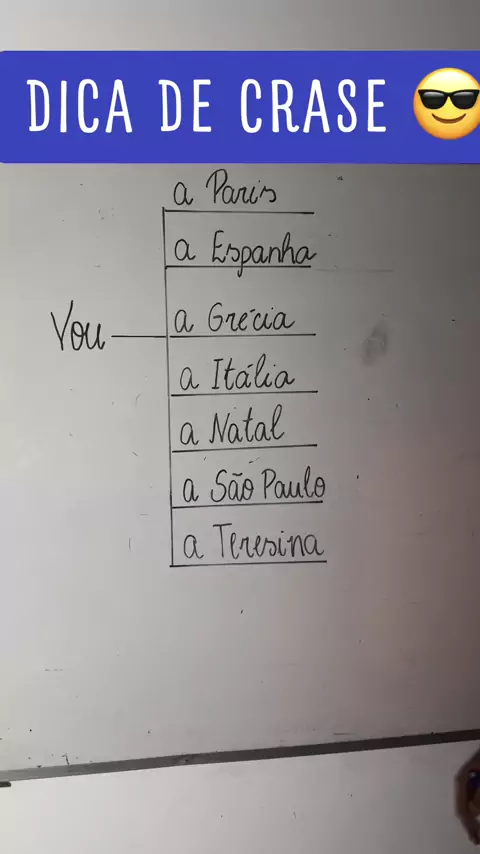 DICA DE CRASE 😎
a Paris
a Espanha
Vou
a Grécia
a Itália
a Natal
a São Paulo
a Teresina